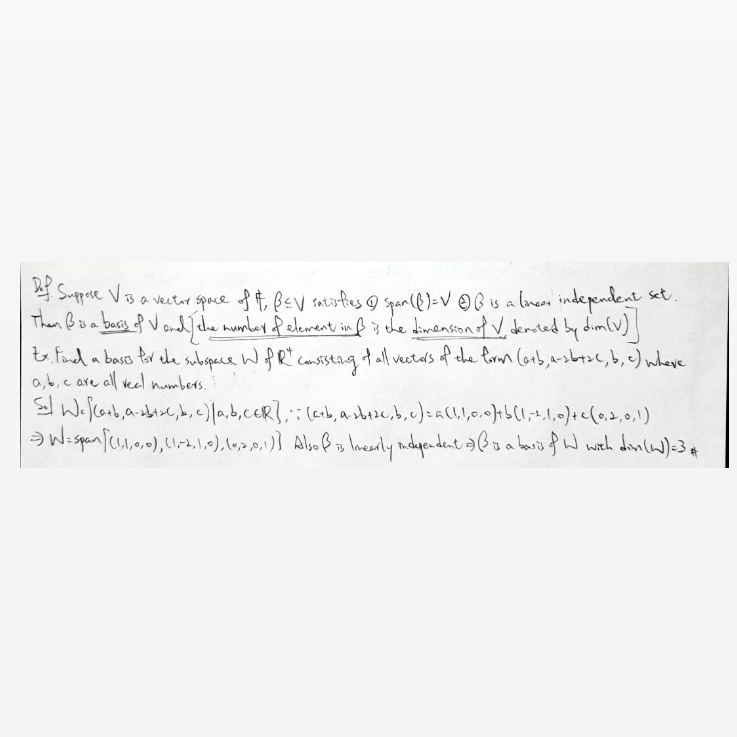 Def. Suppose V is a vector space of F, β⊆V satisfies ① span(β)=V ② β is a linear independent set.
Then β is a basis of V and [the number of element in β is the dimension of V denoted by dim(V)]
Ex. Find a basis for the subspace W of R⁴ consisting of all vectors of the form (a+b, a-2b+2c, b, c) where
a, b, c are all real numbers.
Sol W={(a+b, a-2b+2c, b, c)|a,b,c∈R}, ∵ (a+b, a-2b+2c, b, c)=a(1,1,0,0)+b(1,-2,1,0)+c(0,2,0,1)
⇒ W=span{(1,1,0,0), (1,-2,1,0), (0,2,0,1)} Also β is linearly independent ⇒ β is a basis of W with dim(W)=3 #